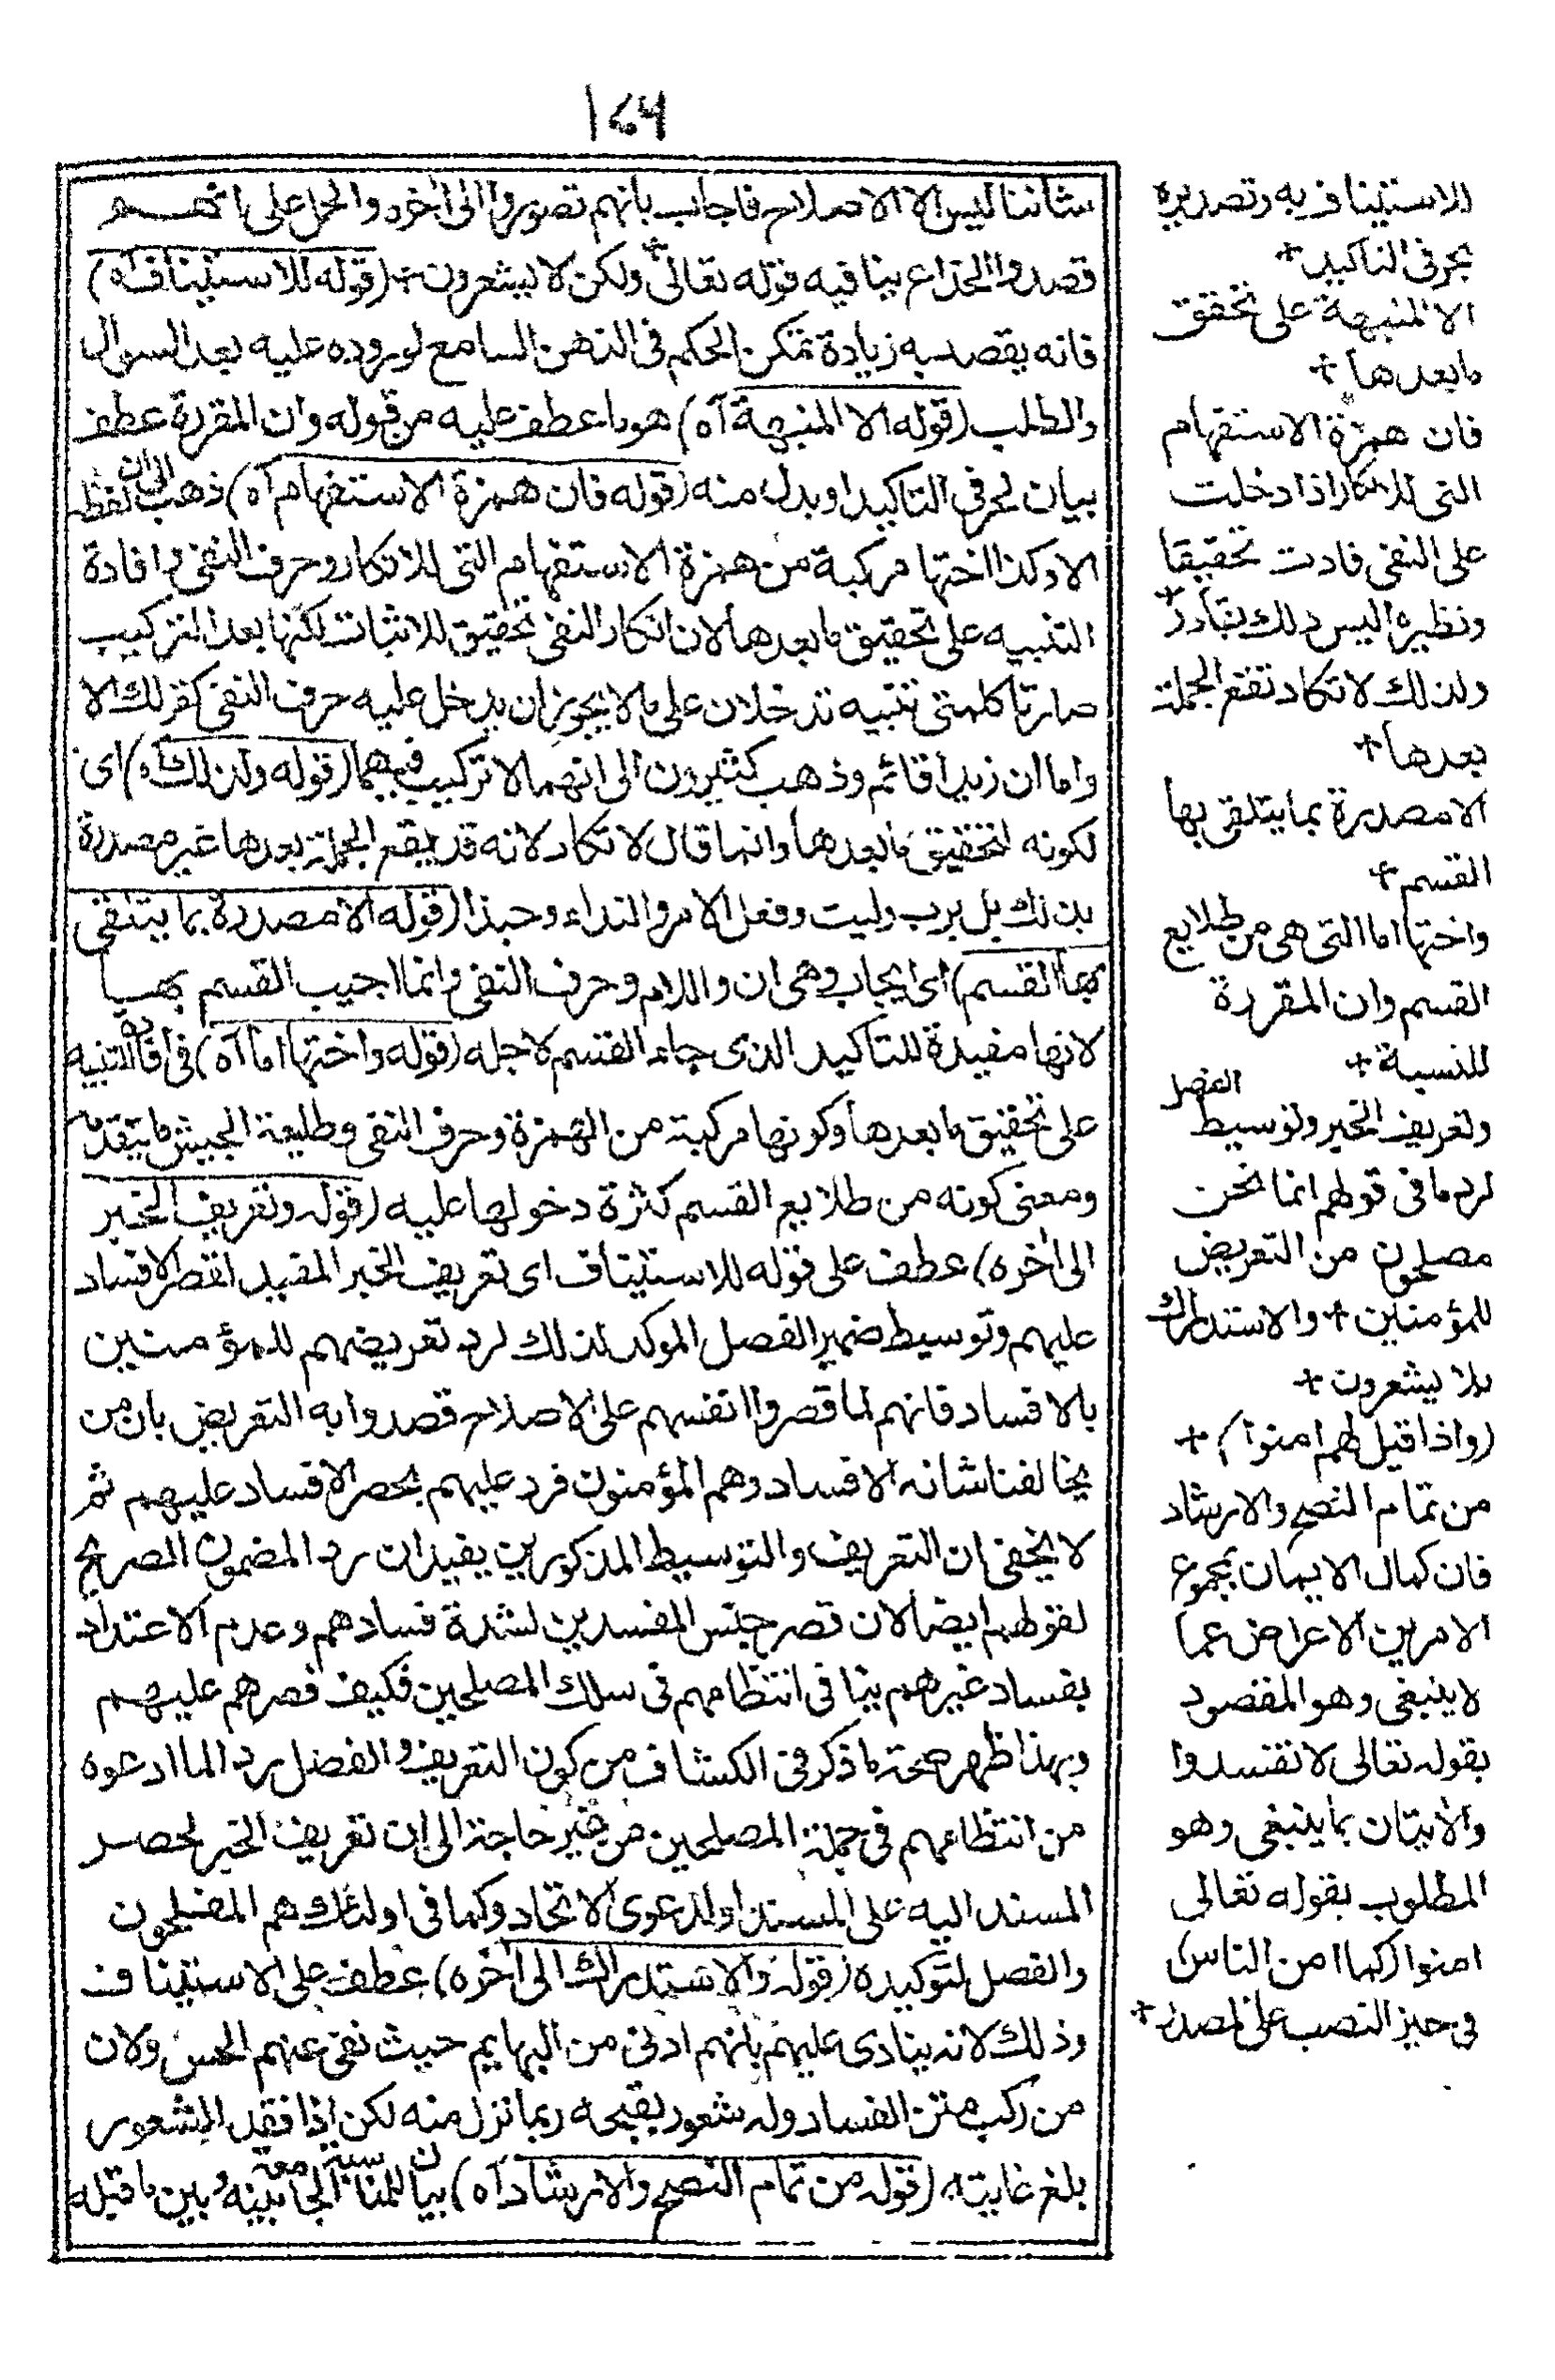 ١٦٤
شأننا ليس الا الاصلاح فاجاب بانهم تصوروا الى اخره والحمل على انهم
قصدوا الخداع ينافيه قوله تعالى ولكن لا يشعرون + (قوله للاستيناف اه)
فانه يقصد به زيادة تمكن الحكم فى الذهن السامع لوروده عليه بعد السوال
والطلب (قوله الا المنبهة آه) هو وما عطف عليه من قوله وان المقررة عطف
بيان لحرفى التاكيد او بدل منه (قوله فان همزة الاستفهام آه) ذهب الى ان لفظة
الا وكذا اختها مركبة من همزة الاستفهام التى للانكار وحرف النفى وافادة
التنبيه على تحقيق ما بعدها لان انكار النفى تحقيق للاثبات لكنها بعد التركيب
صارتا كلمتى تنبيه تدخلان على ما لا يجوز ان يدخل عليه حرف النفى كقولك الا
واما ان زيدا قائم وذهب كثيرون الى انهما لا تركيب فيهما (قوله ولذلك اه) اى
لكونه لتحقيق ما بعدها وانما قال لا تكاد لانه قد يقع الجملة بعدها غير مصدرة
بذلك بل برب وليت وفعل الامر والنداء وحبذا (قوله الا مصدرة بما يتلقى
بها القسم) اى يجاب وهى ان واللام وحرف النفى وانما اجيب القسم بها
لانها مفيدة للتاكيد الذى جاء القسم لاجله (قوله واختها اما آه) فى افادة التنبيه
على تحقيق ما بعدها وكونها مركبة من الهمزة وحرف النفى وطليعة الجيش ما يتقدمه
ومعنى كونه من طلايع القسم كثرة دخولها عليه (قوله وتعريف الخبر
الى اخره) عطف على قوله للاستيناف اى تعريف الخبر المفيد لقصر الافساد
عليهم وتوسيط ضمير الفصل الموكد لذلك لرد تعريضهم للمؤمنين
بالافساد فانهم لما قصروا انفسهم على الاصلاح قصدوا به التعريض بان من
يخالفنا شانه الافساد وهم المؤمنون فرد عليهم بحصر الافساد عليهم ثم
لا يخفى ان التعريف والتوسيط المذكورين يفيدان رد المضمون الصريح
لقولهم ايضا لان قصر جنس المفسدين لشدة فسادهم وعدم الاعتداد
بفساد غيرهم ينافى انتظامهم فى سلك المصلحين فكيف قصرهم عليهم
وبهذا ظهر صحة ما ذكر فى الكشاف من كون التعريف والفصل ردا لما ادعوه
من انتظامهم فى جملة المصلحين من غير حاجة الى ان تعريف الخبر لحصر
المسند اليه على المسند او لدعوى الاتحاد وكما فى اولئك هم المفلحون
والفصل لتوكيده (قوله والاستدراك الى اخره) عطف على الاستيناف
وذلك لانه ينادى عليهم بانهم ادنى من البهايم حيث نفى عنهم الحس ولان
من ركب متن الفساد وله شعور بقبحه ربما نزل منه لكن اذا فقد الشعور
بلغ غايته (قوله من تمام النصح والارشاد آه) بيان للمناسبة الجامعة بينه وبين ما قبله
للاستيناف به وتصديره
بحرفى التاكيد +
الا المنبهة على تحقق
ما بعدها +
فان همزة الاستفهام
التى للانكار اذا دخلت
على النفى فادت تحقيقا
ونظيره اليس ذلك بقادر +
ولذلك لا تكاد تقع الجملة
بعدها +
الا مصدرة بما يتلقى بها
القسم +
واختها اما التى هى من طلايع
القسم وان المقررة
للنسبة +
وتعريف الخبر وتوسيط الفصل
لرد ما فى قولهم انما نحن
مصلحون من التعريض
للمؤمنين + والاستدراك
بلا يشعرون +
(واذا قيل لهم امنوا) +
من تمام النصح والارشاد
فان كمال الايمان بمجموع
الامرين الاعراض عما
لا ينبغى وهو المقصود
بقوله تعالى لا تفسدوا
والاتيان بما ينبغى وهو
المطلوب بقوله تعالى
امنوا (كما امن الناس)
فى حيز النصب على المصدر +